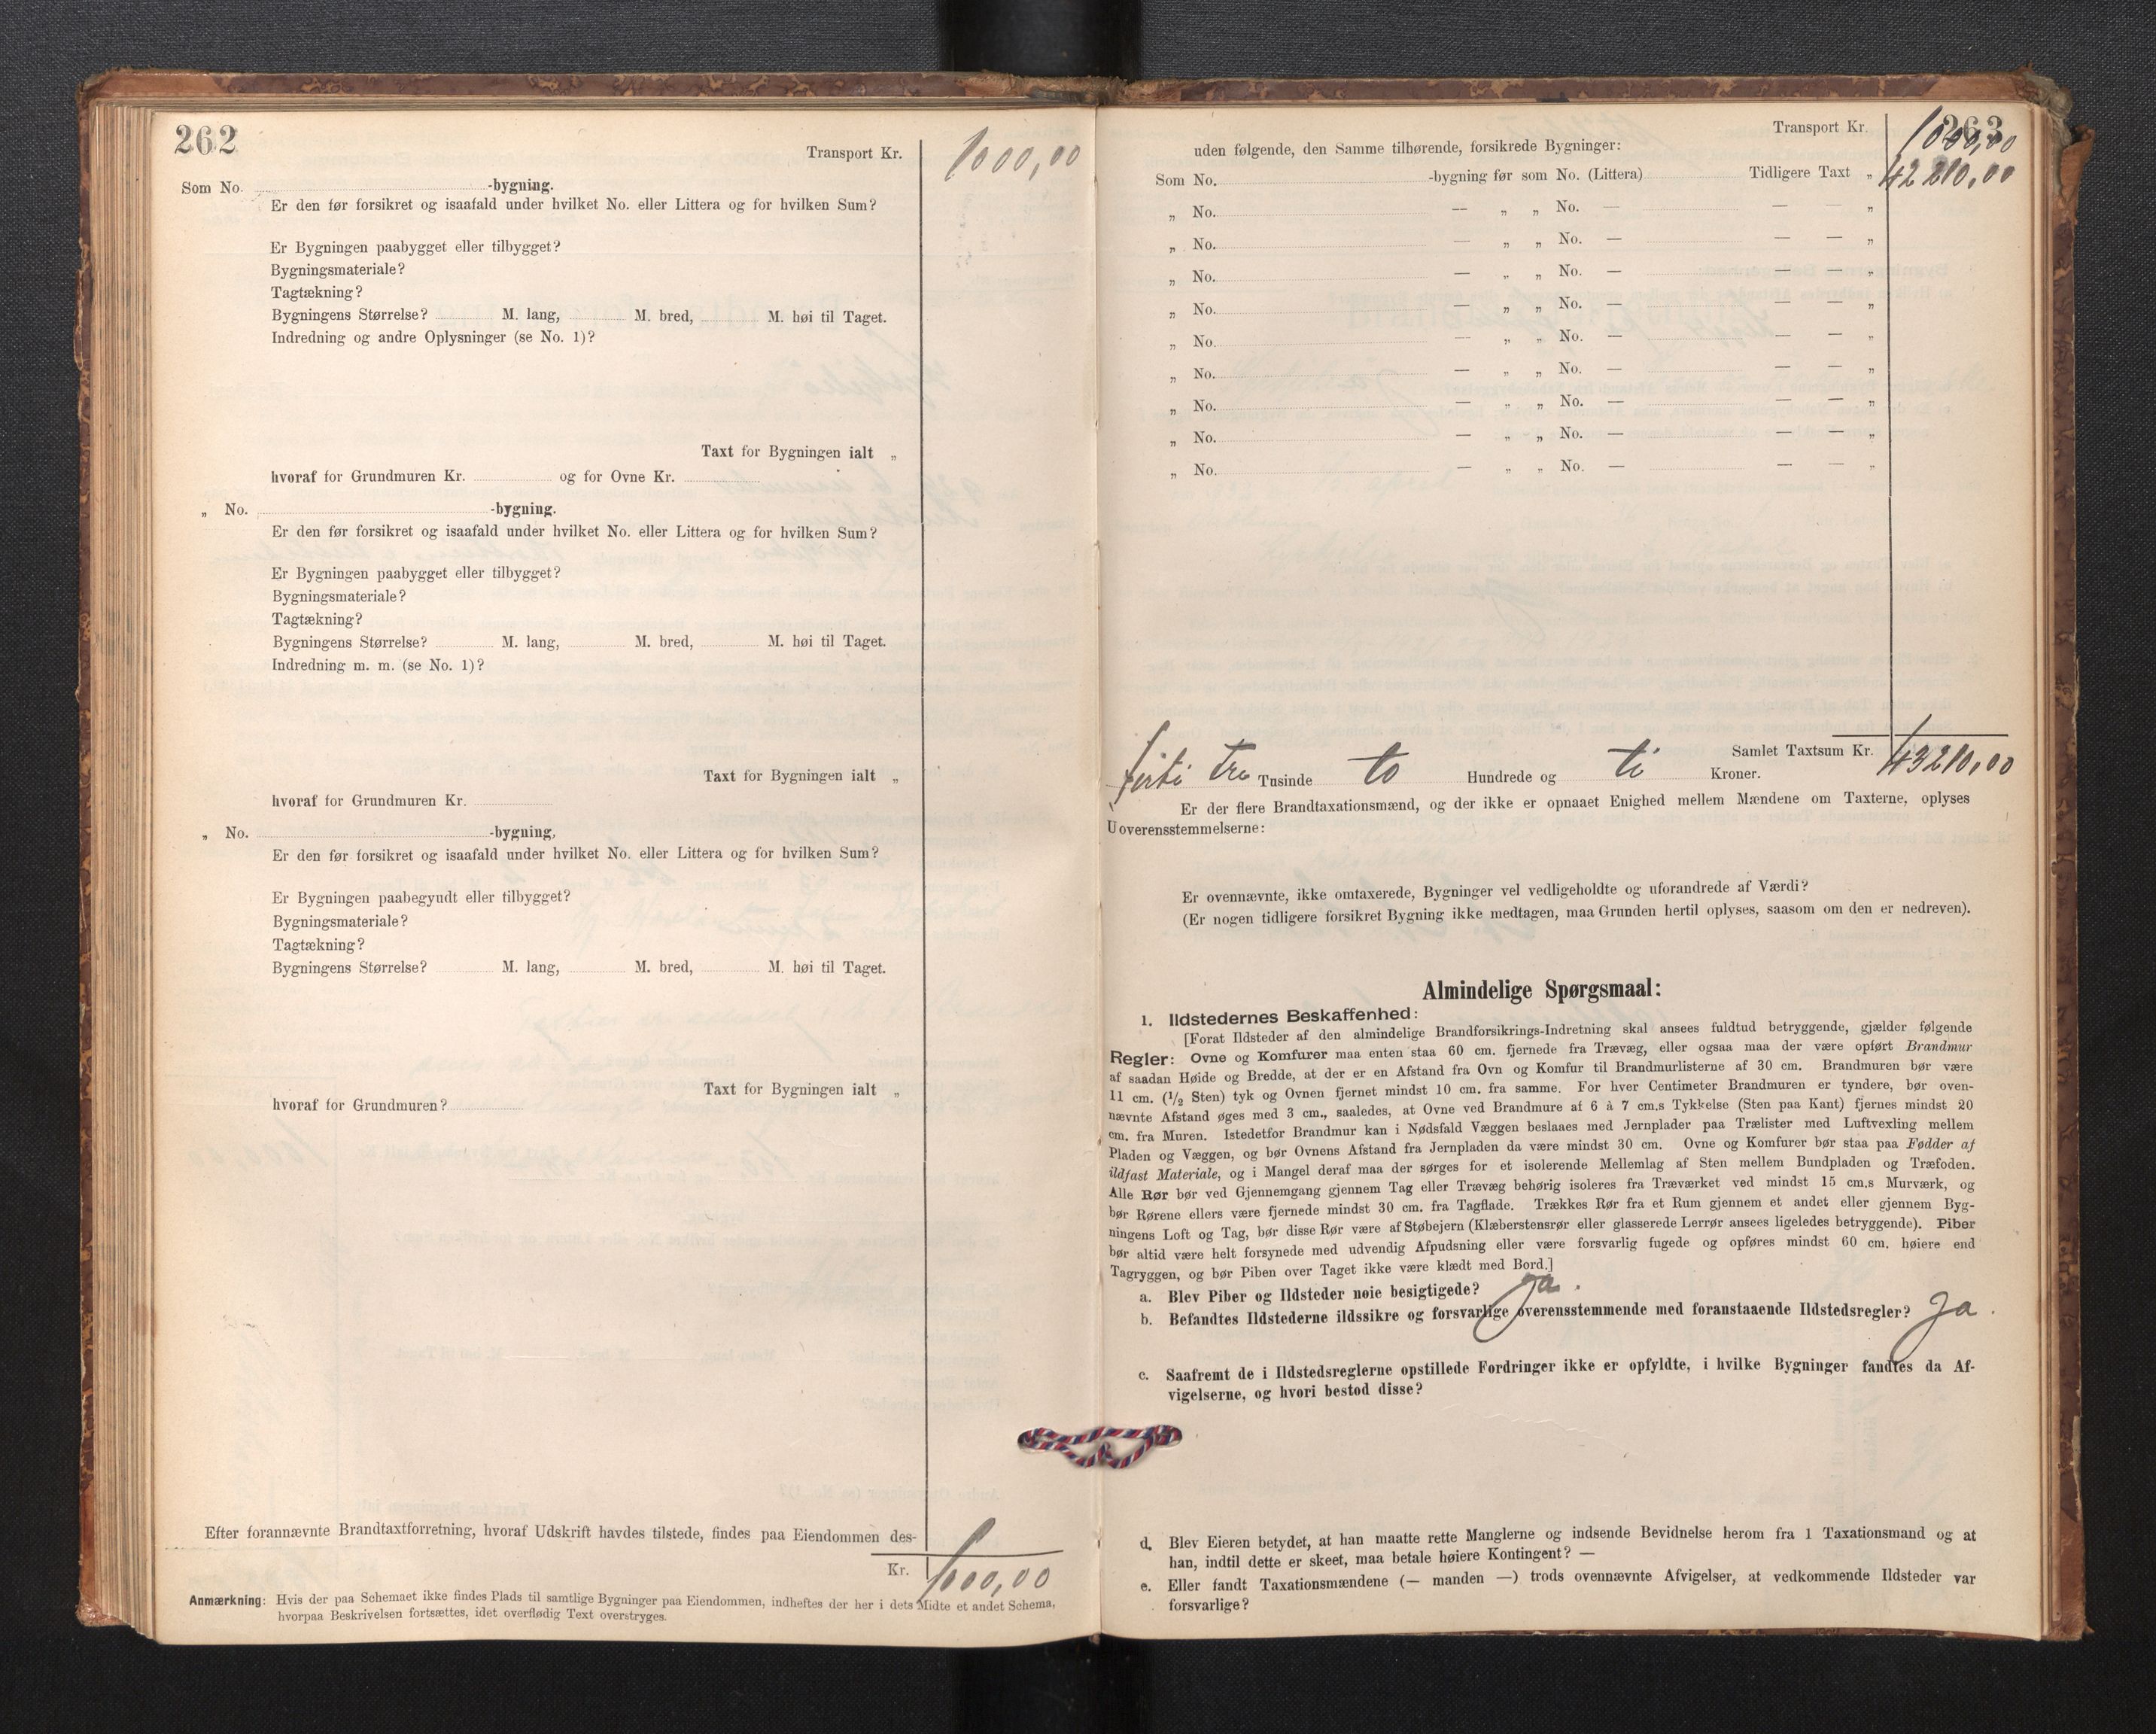 262
Transport Kr. 1000,00
Som No. -bygning.
Er den før forsikret og isaafald under hvilket No. eller Littera og for hvilken Sum?
Er Bygningen paabygget eller tilbygget?
Bygningsmateriale?
Tagtækning?
Bygningens Størrelse? M. lang, M. bred, M. høi til Taget.
Indredning og andre Oplysninger (se No. 1)?
Taxt for Bygningen ialt „
hvoraf for Grundmuren Kr. og for Ovne Kr.
„ No. -bygning.
Er den før forsikret og isaafald under hvilket No. eller Littera og for hvilken Sum?
Er Bygningen paabygget eller tilbygget?
Bygningsmateriale?
Tagtækning?
Bygningens Størrelse? M. lang, M. bred, M. høi til Taget.
Indredning m. m. (se No. 1)?
Taxt for Bygningen ialt „
hvoraf for Grundmuren Kr.
„ No. -bygning,
Er den før forsikret og isaafald under hvilket No. eller Littera og for hvilken Sum?
Er Bygningen paabegyndt eller tilbygget?
Bygningsmateriale?
Tagtækning?
Bygningens Størrelse? M. lang, M. bred, M. høi til Taget.
Taxt for Bygningen ialt „
hvoraf for Grundmuren?
Efter forannævnte Brandtaxtforretning, hvoraf Udskrift havdes tilstede, findes paa Eiendommen des-
Kr. 1000,00
Anmærkning: Hvis der paa Schemaet ikke findes Plads til samtlige Bygninger paa Eiendommen, indheftes der her i dets Midte et andet Schema,
hvorpaa Beskrivelsen fortsættes, idet overflødig Text overstryges.
263
Transport Kr. 1000,00
uden følgende, den Samme tilhørende, forsikrede Bygninger:
Som No. -bygning før som No. (Littera) Tidligere Taxt „ 42210,00
„ No. — „ „ No. — — — „
„ No. — „ „ No. — — — „
„ No. — „ „ No. — — — „
„ No. — „ „ No. — — — „
„ No. — „ „ No. — — — „
„ No. — „ „ No. — — — „
„ No. — „ „ No. — — — „
„ No. — „ „ No. — — — „
„ No. — „ „ No. — — — „
Samlet Taxtsum Kr. 43210,00
firti tre Tusinde to Hundrede og ti Kroner.
Er der flere Brandtaxationsmænd, og der ikke er opnaaet Enighed mellem Mændene om Taxterne, oplyses
Uoverensstemmelserne:
Er ovennævnte, ikke omtaxerede, Bygninger vel vedligeholdte og uforandrede af Værdi?
(Er nogen tidligere forsikret Bygning ikke medtagen, maa Grunden hertil oplyses, saasom om den er nedreven).
Almindelige Spørgsmaal:
1. Ildstedernes Beskaffenhed:
[Forat Ildsteder af den almindelige Brandforsikrings-Indretning skal ansees fuldtud betryggende, gjælder følgende
Regler: Ovne og Komfurer maa enten staa 60 cm. fjernede fra Trævæg, eller ogsaa maa der være opført Brandmur
af saadan Høide og Bredde, at der er en Afstand fra Ovn og Komfur til Brandmurlisterne af 30 cm. Brandmuren bør være
11 cm. (1/2 Sten) tyk og Ovnen fjernet mindst 10 cm. fra samme. For hver Centimeter Brandmuren er tyndere, bør oven-
nævnte Afstand øges med 3 cm., saaledes, at Ovne ved Brandmure af 6 à 7 cm.s Tykkelse (Sten paa Kant) fjernes mindst 20
cm. fra Muren. Istedetfor Brandmur kan i Nødsfald Væggen beslaaes med Jernplader paa Trælister med Luftvexling mellem
Pladen og Væggen, og bør Ovnens Afstand fra Jernpladen da være mindst 30 cm. Ovne og Komfurer bør staa paa Fødder af
ildfast Materiale, og i Mangel deraf maa der sørges for et isolerende Mellemlag af Sten mellem Bundpladen og Træfoden.
Alle Rør bør ved Gjennemgang gjennem Tag eller Trævæg behørig isoleres fra Træværket ved mindst 15 cm.s Murværk, og
bør Rørene ellers være fjernede mindst 30 cm. fra Tagflade. Trækkes Rør fra et Rum gjennem et andet eller gjennem Byg-
ningens Loft og Tag, bør disse Rør være af Støbejern (Klæberstensrør eller glasserede Lerrør ansees ligeledes betryggende). Piber
bør altid være helt forsynede med udvendig Afpudsning eller være forsvarlig fugede og opføres mindst 60 cm. høiere end
Tagryggen, og bør Piben over Taget ikke være klædt med Bord.]
a. Blev Piber og Ildsteder nøie besigtigede? ja.
b. Befandtes Ildstederne ildssikre og forsvarlige overensstemmende med foranstaaende Ildstedsregler? ja.
c. Saafremt de i Ildstedsreglerne opstillede Fordringer ikke er opfyldte, i hvilke Bygninger fandtes da Af-
vigelserne, og hvori bestod disse?
d. Blev Eieren betydet, at han maatte rette Manglerne og indsende Bevidnelse herom fra 1 Taxationsmand og at
han, indtil dette er skeet, maa betale høiere Kontingent? —
e. Eller fandt Taxationsmændene (— manden —) trods ovennævnte Afvigelser, at vedkommende Ildsteder var
forsvarlige?